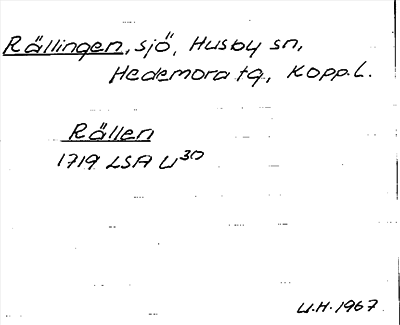 Rällingen, sjö, Husby sn,
Hedemora tg., Kopp. l.
Rällen
1719 LSA U30
U.H. 1967